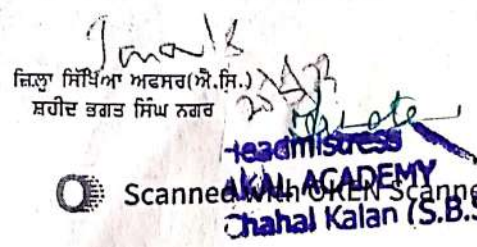 ਜ਼ਿਲ੍ਹਾ ਸਿੱਖਿਆ ਅਫਸਰ(ਐ.ਸਿ.)
ਸ਼ਹੀਦ ਭਗਤ ਸਿੰਘ ਨਗਰ
Headmistress
AKAL ACADEMY
Chahal Kalan (S.B.S
Scanned with OKEN Scanne